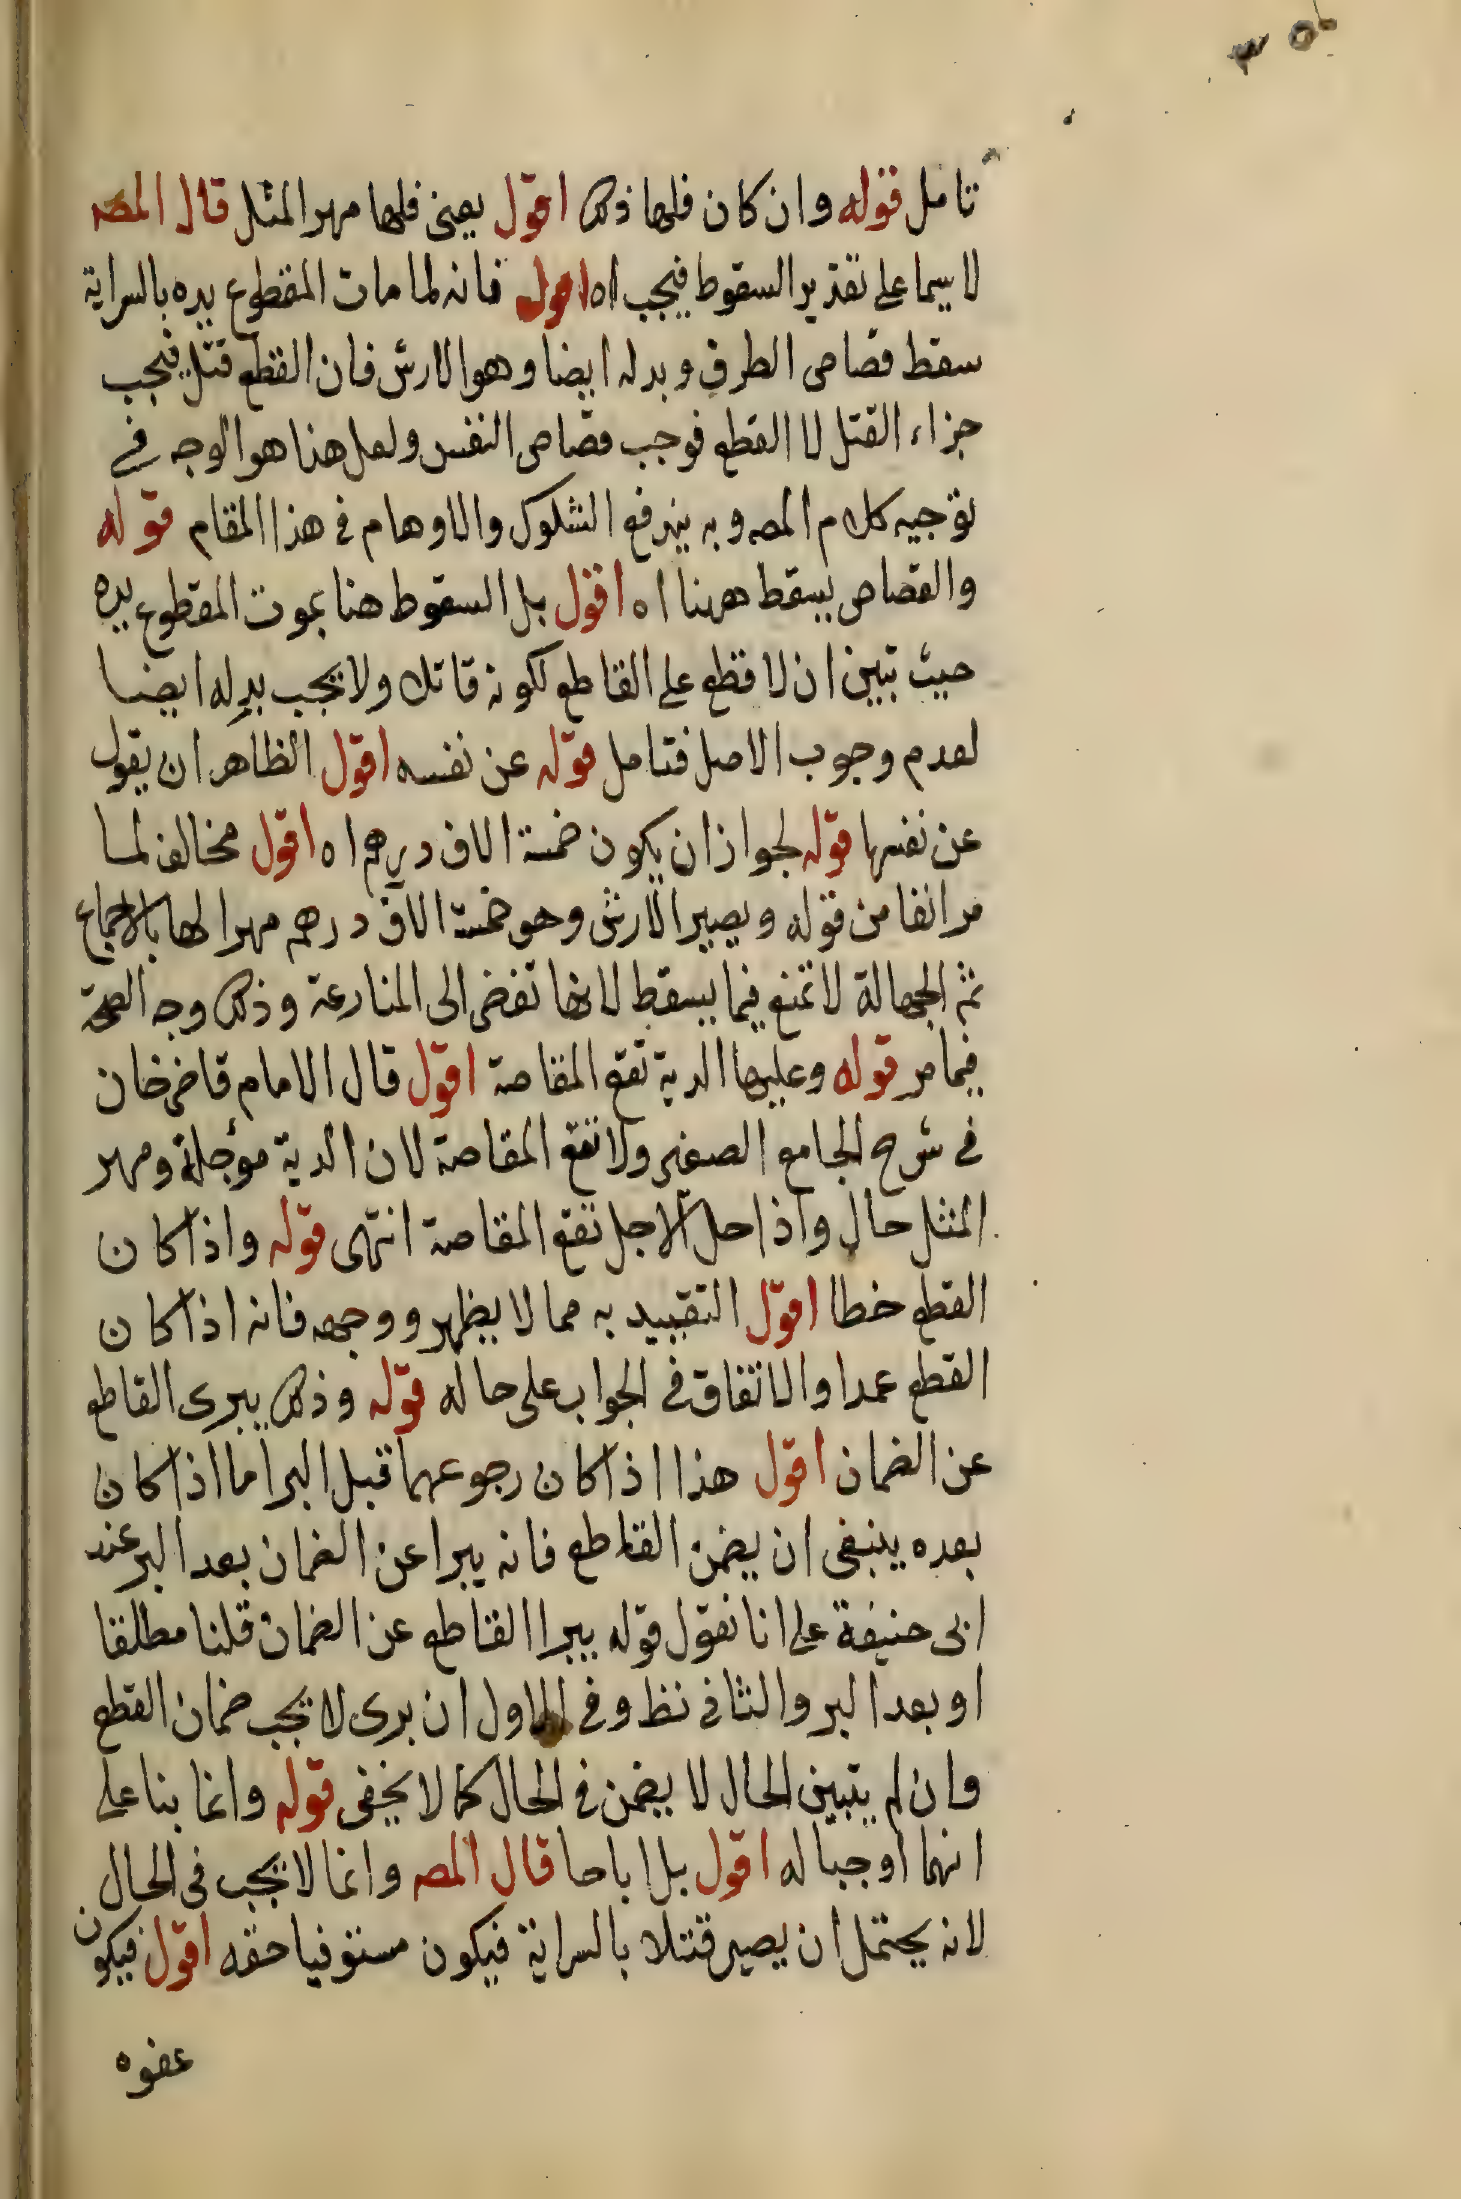 تامل قوله وان كان فلها ذلك اقول يعنى فلها مهر المثل قال المصه
لا سيما على تقدير السقوط فيجب اه اقول فانه لما مات المقطوع يده بالسراية
سقط قصاص الطرف وبدله ايضا وهو الارش فان القطع قتل فيجب
جزاء القتل لا القطع فوجب قصاص النفس ولعل هذا هو الوجه فى
توجيه كلام المصه وبه يندفع الشكوك والاوهام فى هذا المقام قوله
والقصاص يسقط ههنا اه اقول بل السقوط هنا بموت المقطوع يده
حيث تبين ان لا قطع على القاطع لكونه قاتلا ولا يجب بدله ايضا
لعدم وجوب الاصل فتامل قوله عن نفسه اقول الظاهر ان يقول
عن نفسها قوله لجواز ان يكون خمسة الاف درهم اه اقول مخالف لما
مر انفا من قوله ويصير الارش وهو خمسة الاف درهم مهرا لها بالاجماع
ثم الجهالة لا تمنع فيما يسقط لانها تفضى الى المنازعة وذلك وجه الصحة
فيما مر قوله وعليها الدية تقع المقاصة اقول قال الامام قاضى خان
فى شرح الجامع الصغير ولا تقع المقاصة لان الدية مؤجلة ومهر
المثل حال واذا حل الاجل تقع المقاصة انتهى قوله واذا كان
القطع خطا اقول التقييد به مما لا يظهر ووجهه فانه اذا كان
القطع عمدا والاتفاق فى الجواب على حاله قوله وذلك يبرى القاطع
عن الضمان اقول هذا اذا كان رجوعهما قبل البر اما اذا كان
بعده ينبغى ان يضمن القاطع فانه يبرا عن الضمان بعد البر عند
ابى حنيفة على انا نقول قوله يبرا القاطع عن الضمان قلنا مطلقا
او بعد البر والثانى نظ وفى الاول ان برى لا يجب ضمان القطع
وان لم يتبين الحال لا يضمن فى الحال كما لا يخفى قوله وانما بنا على
انهما اوجبا له اقول بل اباحا قال المصه وانما لا يجب فى الحال
لانه يحتمل ان يصير قتلا بالسراية فيكون مستوفيا حقه اقول فيكون
عفوه